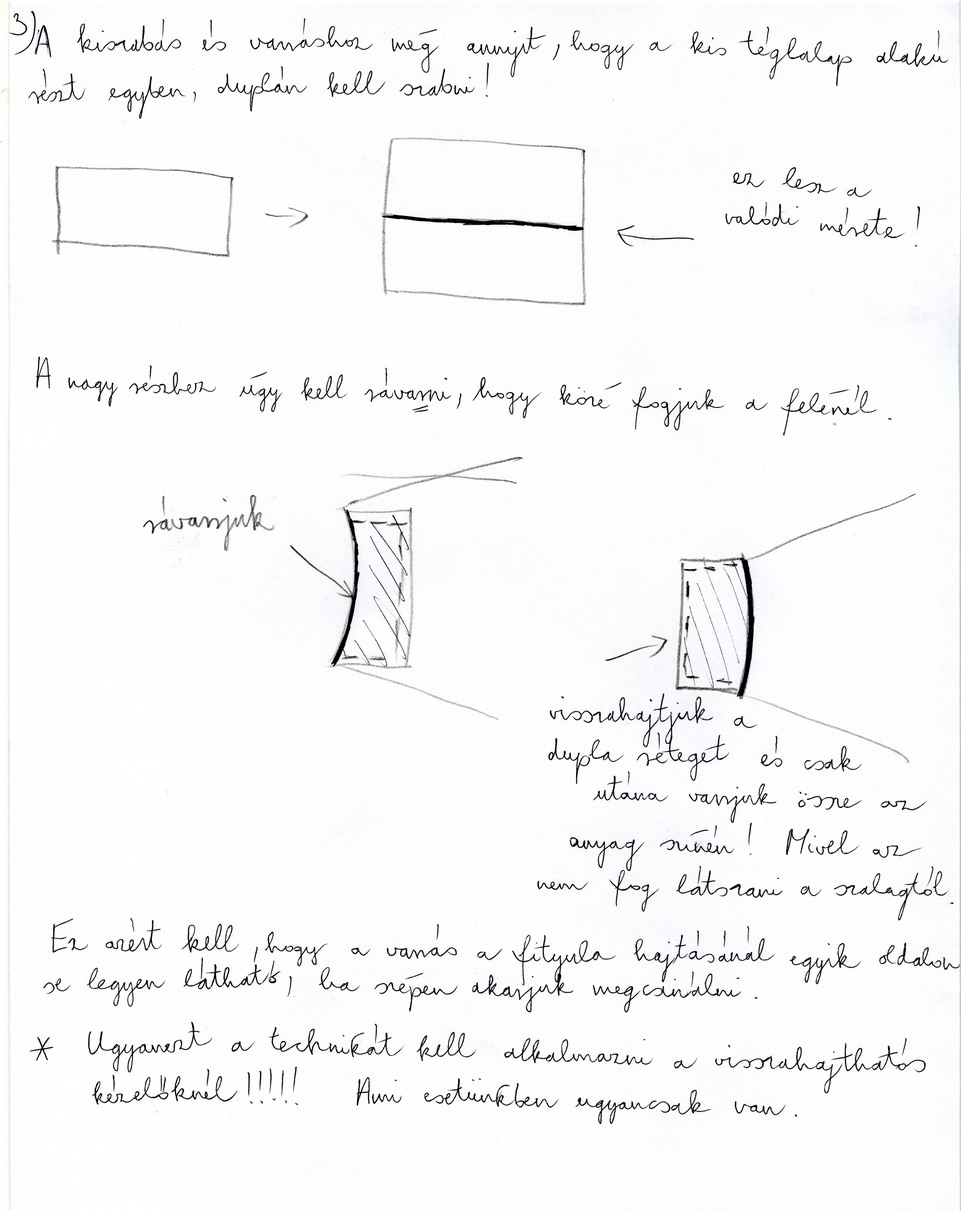 3) A kiszabás és varráshoz még annyit, hogy a kis téglalap alakú
részt egyben, duplán kell szabni!
ez lesz a
valódi mérete!
A nagy részhez úgy kell rávarrni, hogy köré fogjuk a felénél.
rávarrjuk
visszahajtjuk a
dupla réteget és csak
utána varrjuk össze az
anyag színén! Mivel az
nem fog látszani a szalagtól.
Ez azért kell, hogy a varrás a fityula hajtásánál egyik oldalon
se legyen látható, ha szépen akarjuk megcsinálni.
* Ugyanezt a technikát kell alkalmazni a visszahajthatós
kézelőknél!!!!! Ami esetünkben ugyancsak van.